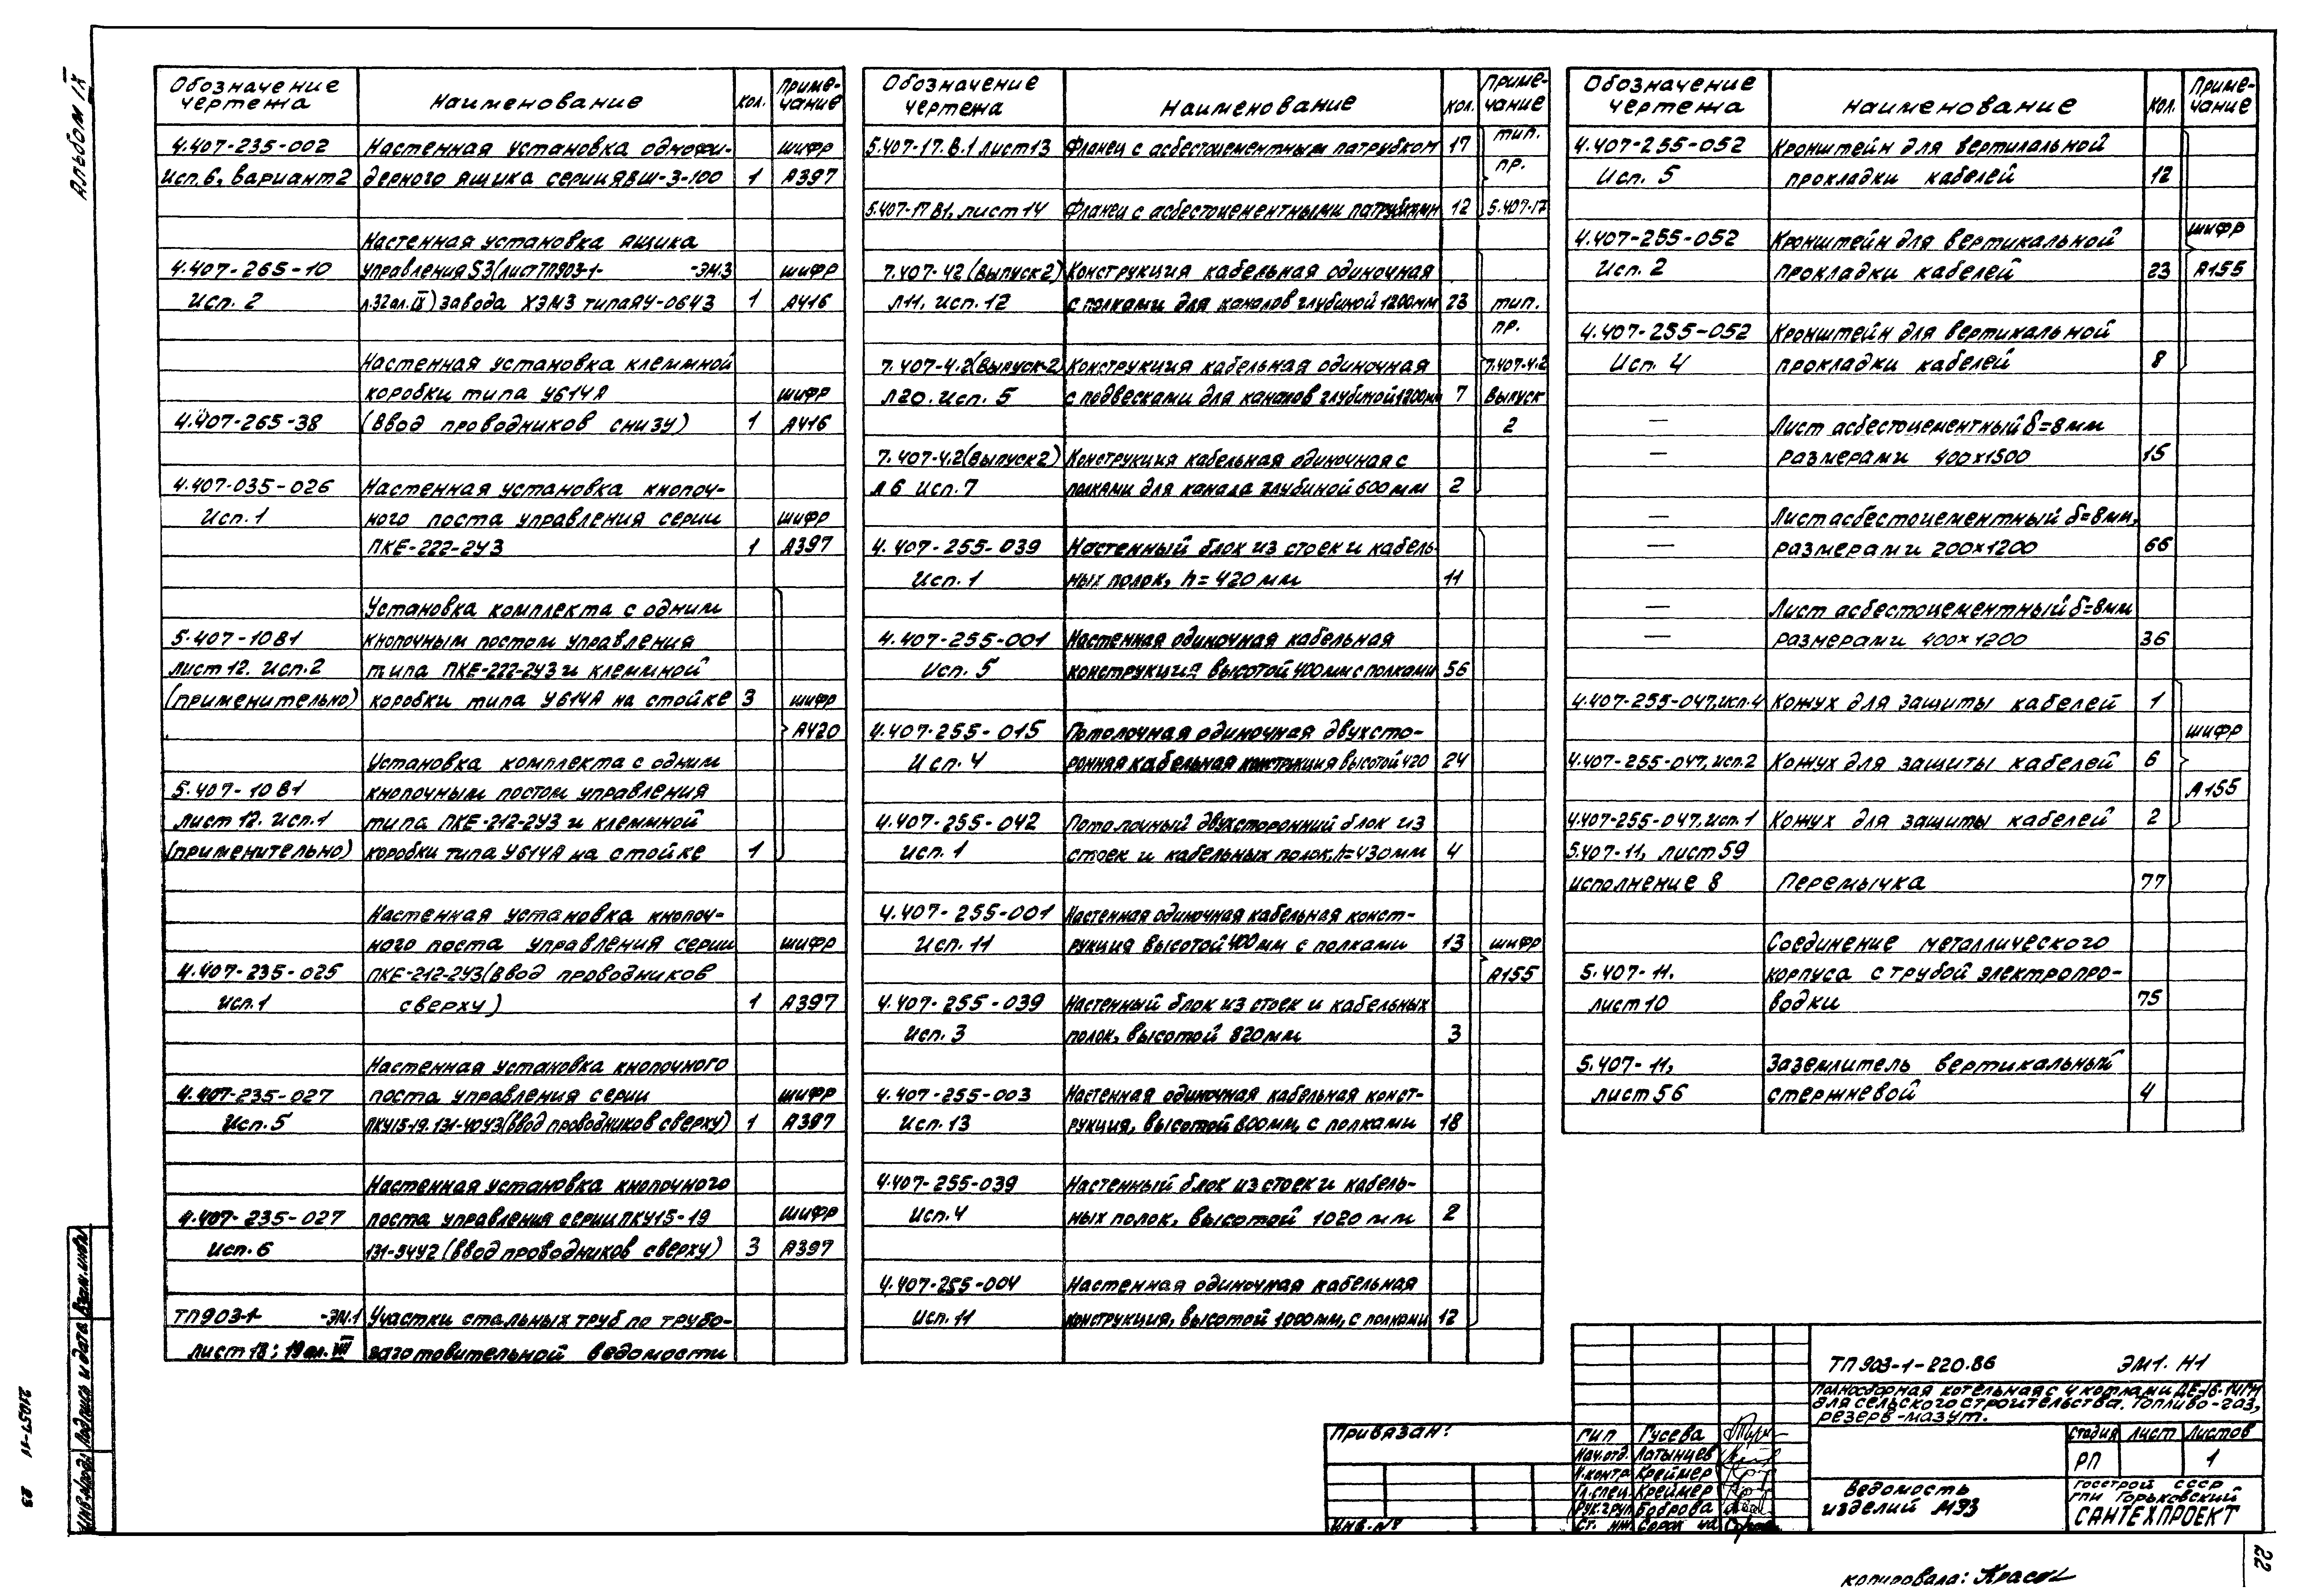 Альбом IX
Обозначение чертежа
Наименование
кол.
Примечание
4.407-235-002 Настенная установка однофи- шифр
Исп.6, вариант 2 дерного ящика серии ЯВШ-3-100 1 А397
Настенная установка ящика
4.407-265-10 управления S3(лист ТП903-1- -ЭМ.3 шифр
Исп. 2 л.32 ал. IX) завода ХЭМЗ типа ЯУ-0643 1 А416
Настенная установка клеммной
коробки типа У614А шифр
4.407-265-38 (ввод проводников снизу) 1 А416
4.407-035-026 Настенная установка кнопоч-
Исп. 1 ного поста управления серии шифр
ПКЕ-222-2У3 1 А397
Установка комплекта с одним
5.407-10В1 кнопочным постом управления
лист 12. исп.2 типа ПКЕ-222-2У3 и клеммной
(применительно) коробки типа У614А на стойке 3 шифр
А420
Установка комплекта с одним
5.407-10В1 кнопочным постом управления
лист 12. исп.1 типа ПКЕ-212-2У3 и клеммной
(применительно) коробки типа У614А на стойке 1
Настенная установка кнопоч-
ного поста управления серии шифр
4.407-235-025 ПКЕ-212-2У3(ввод проводников
исп.1 сверху) 1 А397
Настенная установка кнопочного
4.407-235-027 поста управления серии шифр
Исп. 5 ПКУ15-19.131-40У3(ввод проводников сверху) 1 А397
Настенная установка кнопочного
4.407-235-027 поста управления серии ПКУ15-19 шифр
Исп. 6 131-54У2 (ввод проводников сверху) 3 А397
ТП903-1- -ЭМ.1 Участки стальных труб по трубо-
лист 18; 19 ал. VIII заготовительной ведомости
Обозначение чертежа
Наименование
кол.
Примечание
5.407-17.В.1 лист 13 Фланец с асбестоцементным патрубком 17 тип.
пр.
5.407-17 В1, лист 14 Фланец с асбестоцементными патрубками 12 5.407-17
7.407-42 (Выпуск 2) Конструкция кабельная одиночная
Л11, исп. 12 с полками для каналов глубиной 1200мм 23 тип.
пр.
7.407-4.2(Выпуск-2) Конструкция кабельная одиночная 7.407-4.2
Л20. исп. 5 с подвесками для каналов глубиной 1200мм 7 Выпуск
2
7.407-4.2(Выпуск 2) Конструкция кабельная одиночная с
Л 6 Исп. 7 полками для канала глубиной 600 мм 2
4.407-255-039 Настенный блок из стоек и кабель-
Исп. 1 ных полок, h=420 мм 11
4.407-255-001 Настенная одиночная кабельная
Исп. 5 конструкция высотой 400мм с полками 56
4.407-255-015 Потолочная одиночная двухсто-
Исп. 4 ронняя кабельная конструкция высотой 420 24
4.407-255-042 Потолочный двухсторонний блок из
Исп. 1 стоек и кабельных полок, h=430мм 4
4.407-255-001 Настенная одиночная кабельная конст-
Исп. 11 рукция высотой 400мм с полками 13 шифр
А155
4.407-255-039 Настенный блок из стоек и кабельных
Исп. 3 полок, высотой 820мм 3
4.407-255-003 Настенная одиночная кабельная конст-
Исп. 13 рукция, высотой 800мм, с полками 18
4.407-255-039 Настенный блок из стоек и кабель-
Исп. 4 ных полок, высотой 1020 мм 2
4.407-255-004 Настенная одиночная кабельная
Исп. 11 конструкция, высотой 1000мм, с полками 12
Обозначение чертежа
Наименование
кол.
Примечание
4.407-255-052 Кронштейн для вертикальной
Исп. 5 прокладки кабелей 12
4.407-255-052 Кронштейн для вертикальной шифр
Исп. 2 прокладки кабелей 23 А155
4.407-255-052 Кронштейн для вертикальной
Исп. 4 прокладки кабелей 8
— Лист асбестоцементный δ=8мм
— размерами 400x1500 15
— Лист асбестоцементный δ=8мм,
— размерами 200x1200 66
— Лист асбестоцементный δ=8мм
— размерами 400x1200 36
4.407-255-047, исп.4 Кожух для защиты кабелей 1
шифр
4.407-255-047, исп.2 Кожух для защиты кабелей 6
А155
4.407-255-047. исп. 1 Кожух для защиты кабелей 2
5.407-11, лист 59
исполнение 8 Перемычка 77
Соединение металлического
5.407-11. корпуса с трубой электропро-
лист 10 водки 75
5.407-11, Заземлитель вертикальный
лист 56 стержневой 4
ТП 903-1-220.86 ЭМ1. Н1
Полносборная котельная с 4 котлами ДЕ-16-14ГМ
для сельского строительства. Топливо-газ,
резерв-мазут.
Привязан:
Инв. №
ГИП Гусева
Нач.отд. Латынцев
Н.контр Креймер
Гл.спец. Креймер
Рук.груп Боброва
Ст. инж
Стадия Лист Листов
РП 1
Ведомость
изделий МЭЗ
Госстрой СССР
ГПИ Горьковский
САНТЕХПРОЕКТ
Инв.№подл Подпись и дата Взам.инв№
21057-11 23
22
копировала: Красн